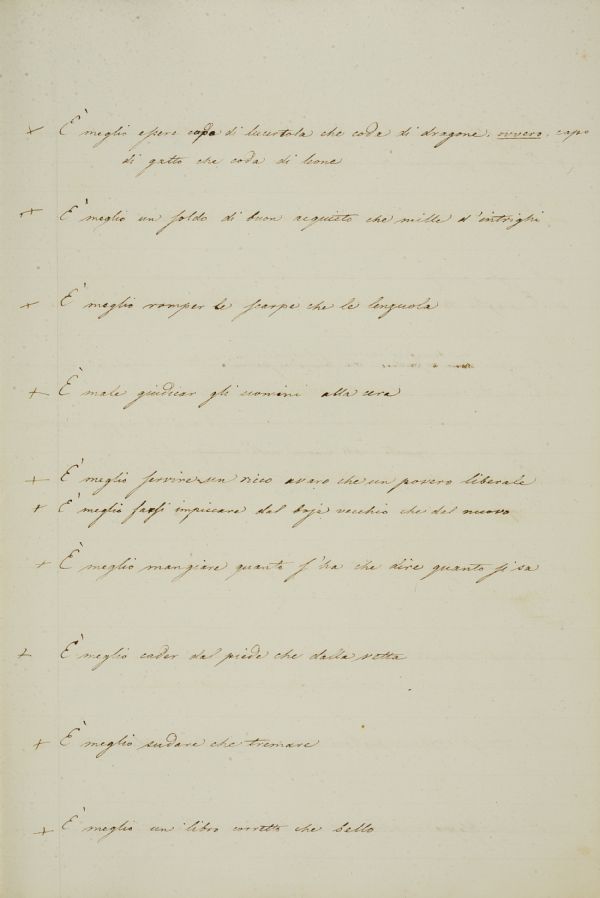 + È meglio essere capo di lucertola che coda di dragone. ovvero. capo
di gatto che coda di leone
+ È meglio un soldo di buon acquisto che mille d'intrighi
+ È meglio romper le scarpe che le lenzuola
+ È male giudicar gli uomini alla cera
+ È meglio servire un ricco avaro che un povero liberale
+ È meglio farsi impiccare dal boja vecchio che dal nuovo
+ È meglio mangiare quanto s'ha che dire quanto si sa
+ È meglio cader dal piede che dalla vetta
+ È meglio sudare che tremare
+ È meglio un libro corretto che bello